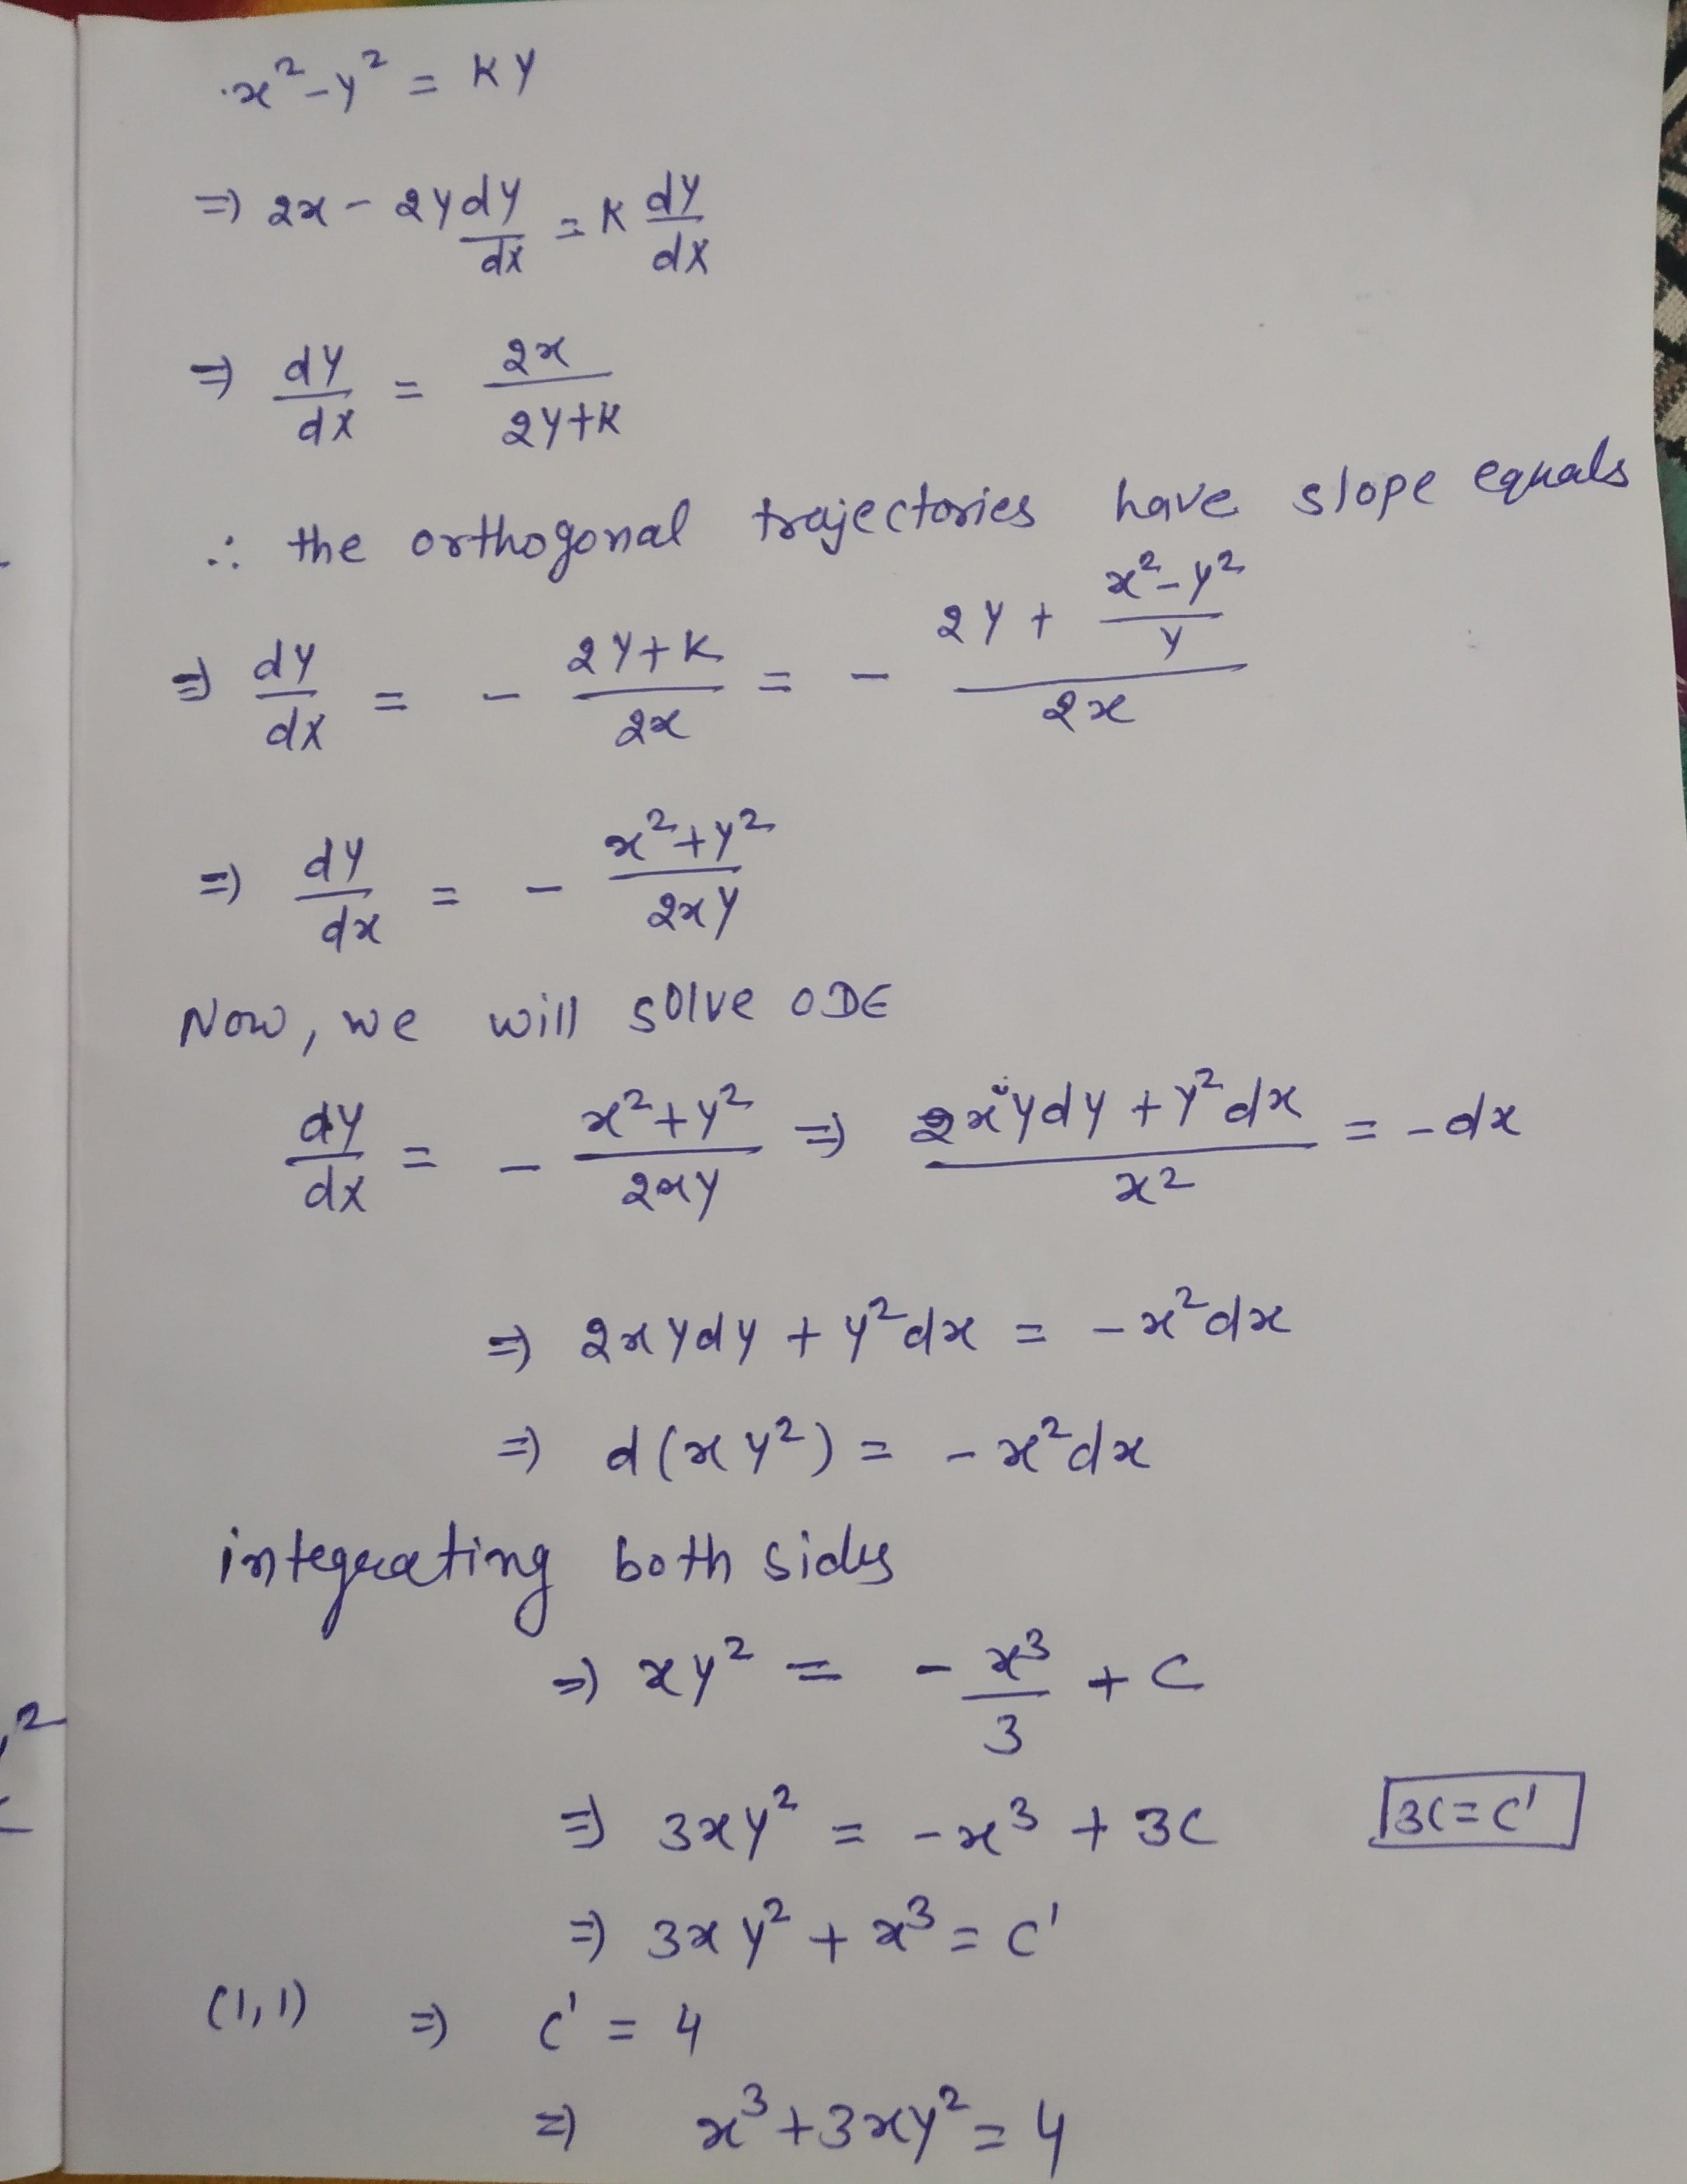 x² - y² = ky
⇒ 2x - 2y dy/dx = k dy/dx
⇒ dy/dx = 2x/(2y+k)
∴ the orthogonal trajectories have slope equals
⇒ dy/dx = - (2y+k)/2x = - (2y + (x²-y²)/y)/2x
⇒ dy/dx = - (x²+y²)/2xy
Now, we will solve ODE
dy/dx = - (x²+y²)/2xy ⇒ (2xydy + y²dx)/x² = -dx
⇒ 2xydy + y²dx = -x²dx
⇒ d(xy²) = -x²dx
integrating both sides
⇒ xy² = - x³/3 + C
⇒ 3xy² = -x³ + 3C   3C = C'
⇒ 3xy² + x³ = C'
(1,1) ⇒ C' = 4
⇒ x³ + 3xy² = 4